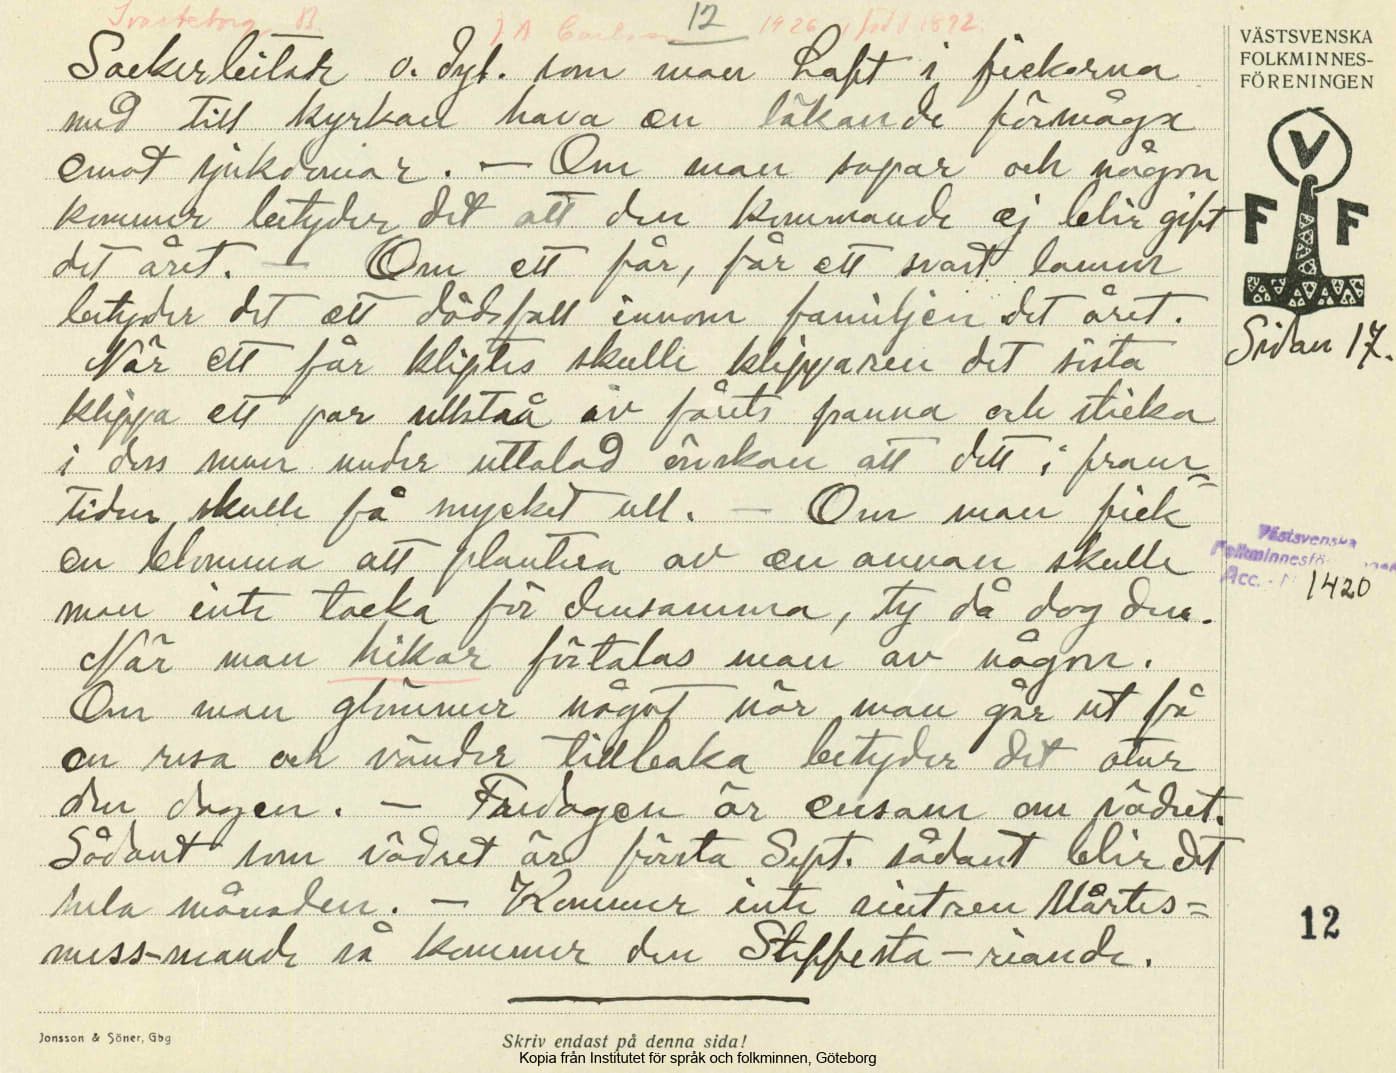 Svarteborg B.
J A Carlsson 12 1926, född 1892.
Sockerbitar o. dyl. som man haft i fickorna
med till kyrkan hava en läkande förmåga
emot sjukdomar. — Om man sopar och någon
kommer betyder det att den kommande ej blir gift
det året. — Om ett får, får ett svart lamm
betyder det ett dödsfall innom familjen det året.
När ett får kliptes skulle klipparen det sista
klippa ett par ullstrå av fårets panna och sticka
i dess mun under uttalad önskan att dett i fram=
tiden skulle få mycket ull. — Om man fick
en blomma att plantera av en annan skulle
man inte tacka för densamma, ty då dog den.
När man hikar förtalas man av någon.
Om man glömmer något när man går ut på
en resa och vänder tillbaka betyder det otur
den dagen. — Fredagen är ensam om vädret.
Sådant som vädret är första Sept. sådant blir det
hela månaden. — Kommer inte vintren Mårtes=
mess-meande så kommer den Steffesta-riande.
VÄSTSVENSKA
FOLKMINNES-
FÖRENINGEN
V
F F
Sidan 17.
Västsvenska
Folkminnesfö
Acc. 1420
12
Jonsson & Söner, Gbg
Skriv endast på denna sida!
Kopia från Institutet för språk och folkminnen, Göteborg